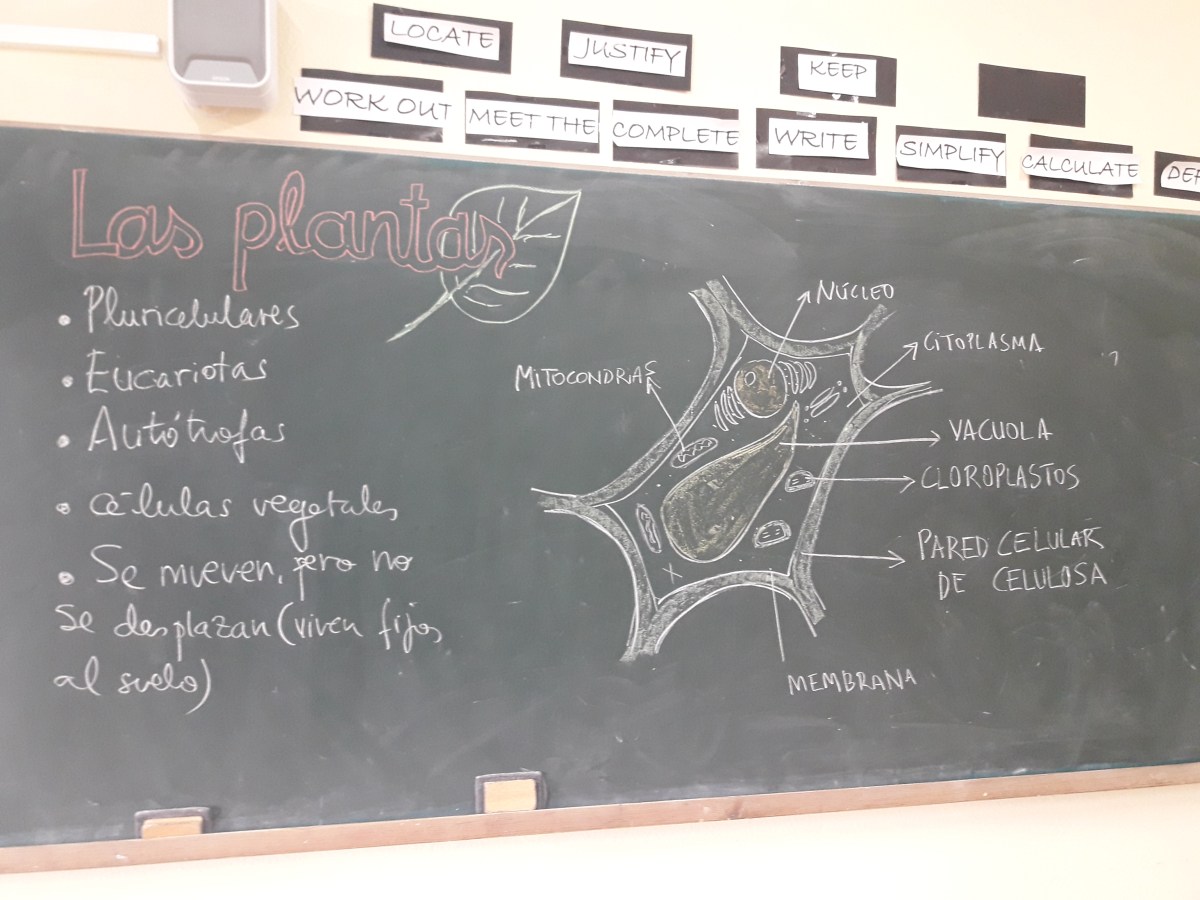 LOCATE
JUSTIFY
KEEP
WORK OUT
MEET THE
COMPLETE
WRITE
SIMPLIFY
CALCULATE
Las plantas
• Pluricelulares
• Eucariotas
• Autótrofas
• células vegetales
• Se mueven, pero no
se desplazan (viven fijos
al suelo)
NÚCLEO
CITOPLASMA
MITOCONDRIAS
VACUOLA
CLOROPLASTOS
PARED CELULAR
DE CELULOSA
MEMBRANA